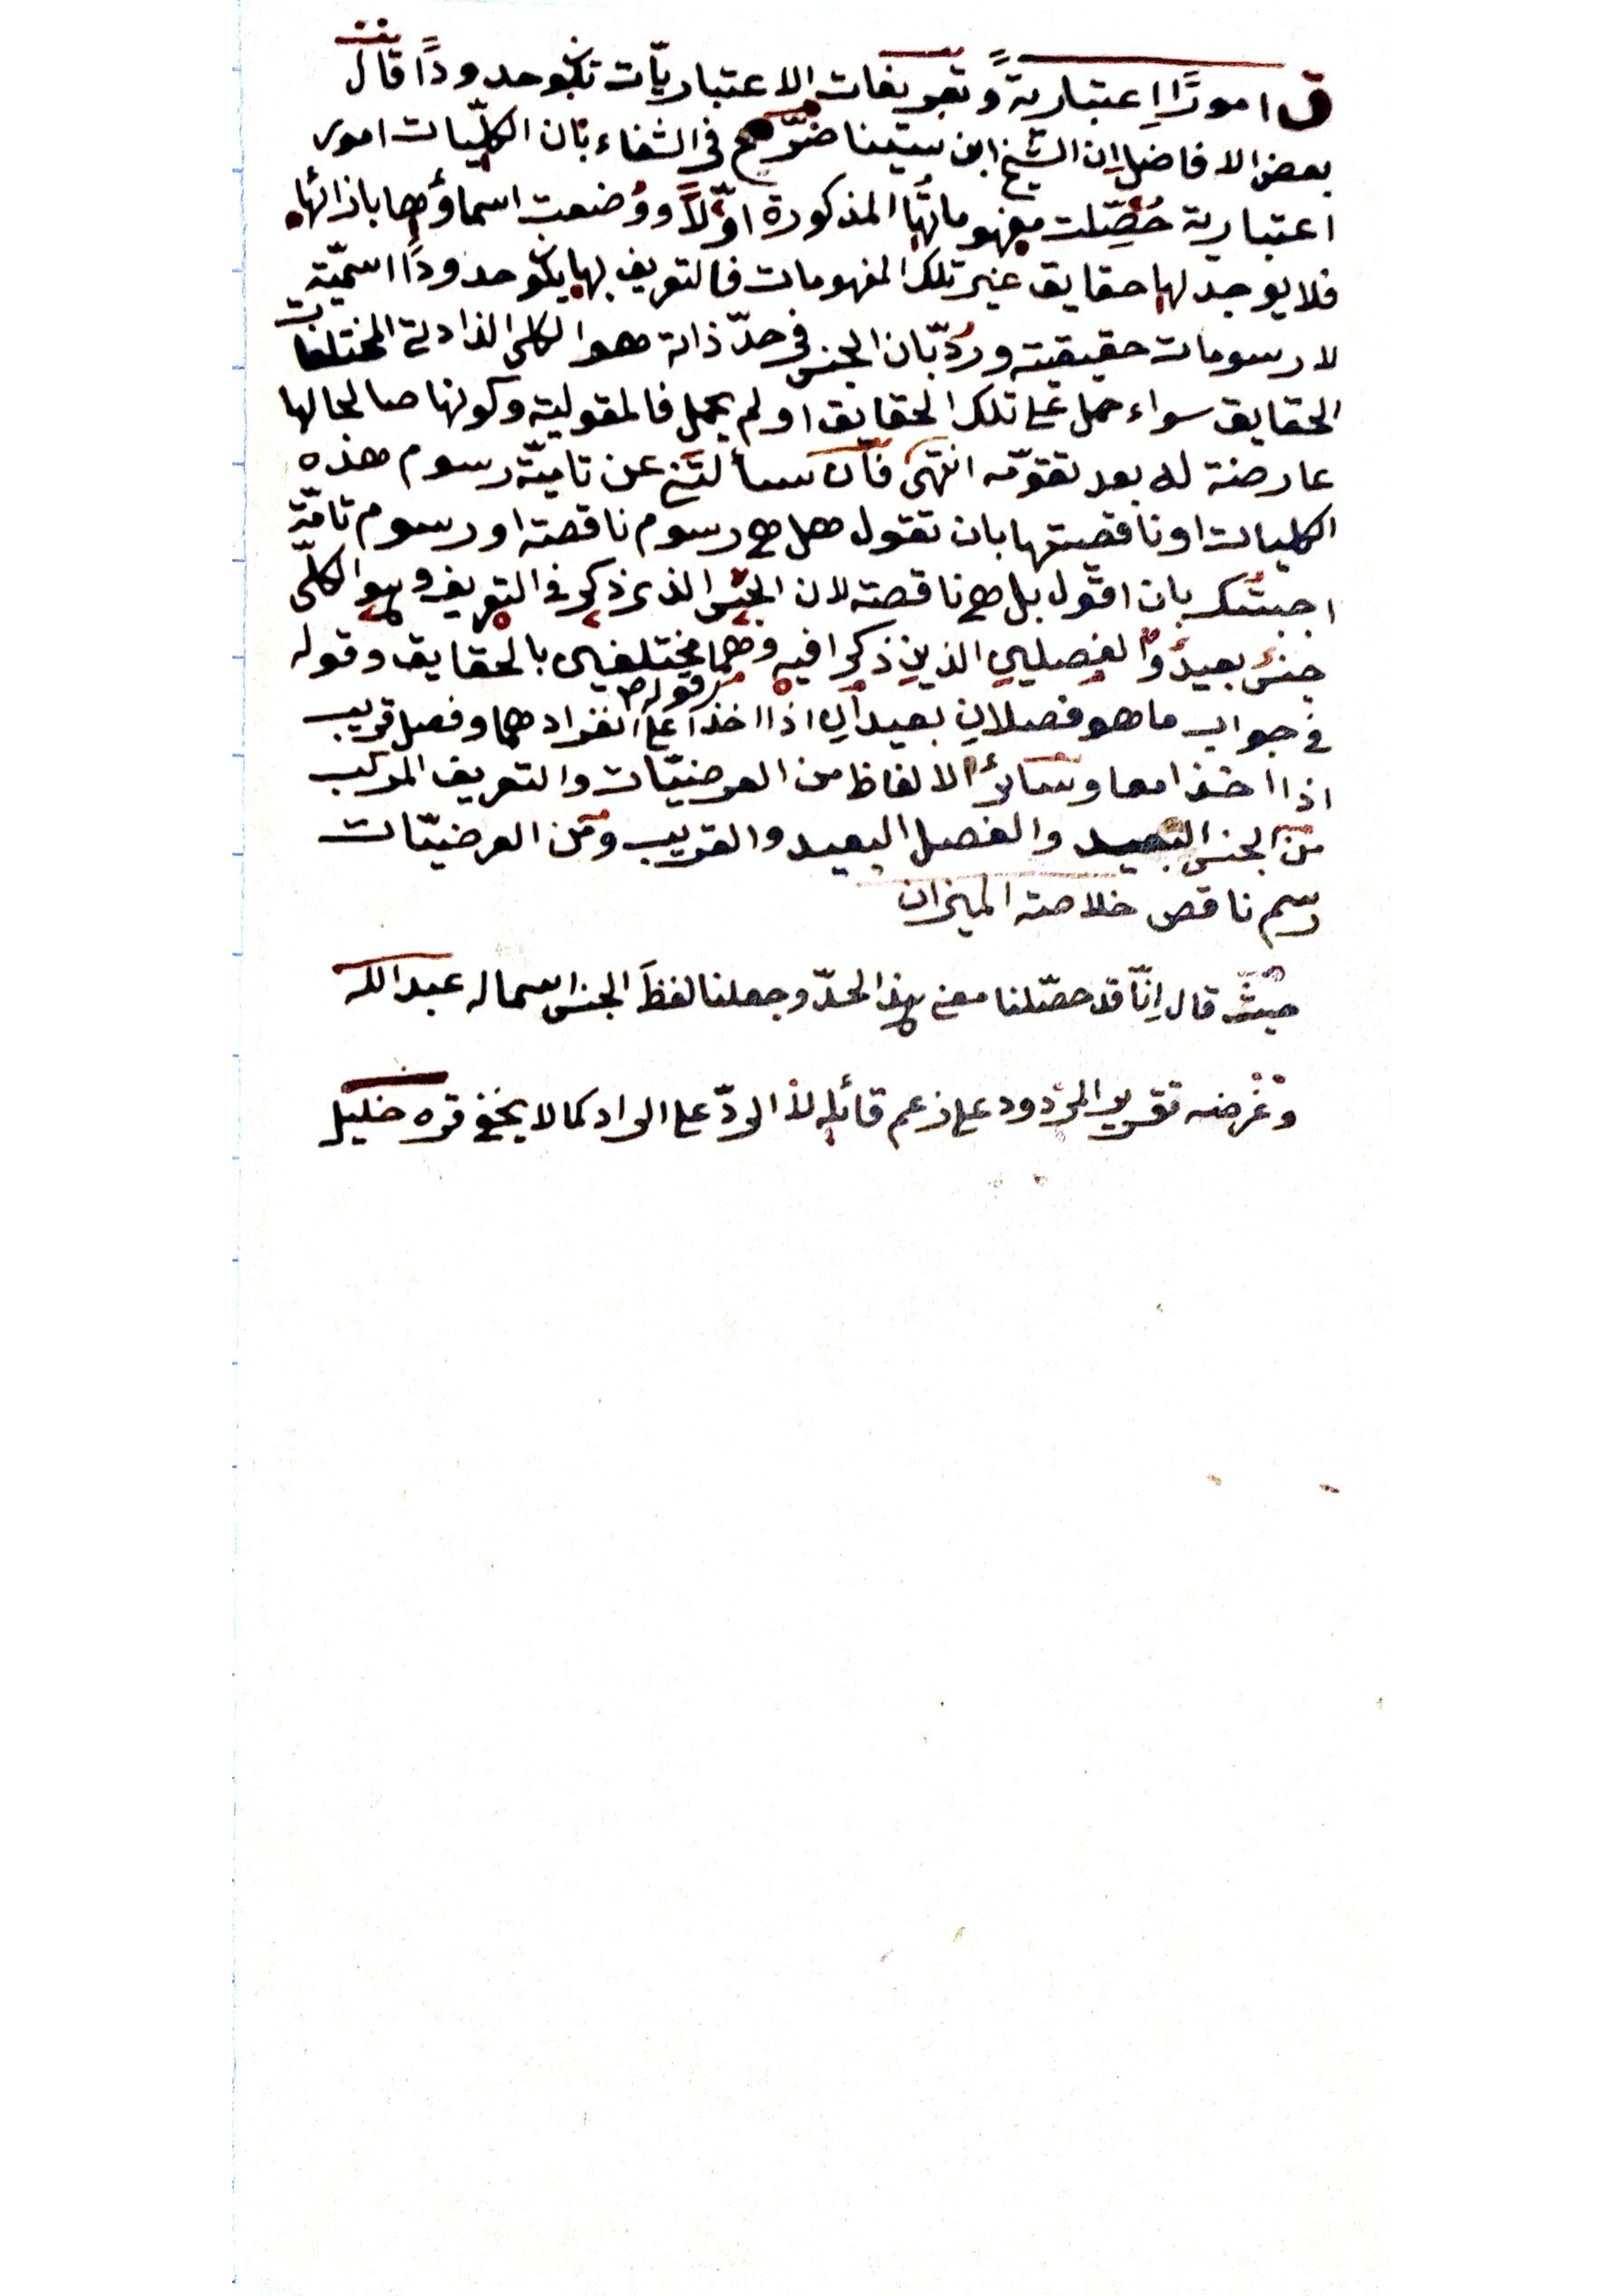 ق امورًا اِعتبارية وتعريفات الاعتباريّات تكون حدودًا قال
بعض الافاضل ان الشيخ ابن سينا صَرّح فى الشفاء بَان الكلّيات امور
اعتبارية حُصِّلت مفهوماتُها المذكورة اوّلًا ووُضعت اسماؤها بازائها
فلا يوجد لها حقايق غير تلك المفهومات فالتعريف بها يكون حدودًا اسميّة
لا رسومات حقيقيته ورُدّ بّان الجنس فى حدّ ذاته هو الكلى الذا دلت المختلفات
الحقايق سواء حمل على تلك الحقايق او لم يحمل فالمقولية وكونها صالحا لها
عارضة له بعد تقوّمه انتهى فآن سألتَنى عن تاميّة رسوم هذه
الكليات او ناقصيتها بان تقول هل هى رسوم ناقصته او رسوم تامّة
اجبتُك بان اقول بل هى ناقصته لان الجنس الذى ذكر فى التعريف وهو الكلّى
جنسٌ بعيدٌ والفصليىِ الذينِ ذكرا فيه وهما مختلفيى بالحقايق وقوله
قوله
فى جواب ما هو فصلانِ بعيدانِ اذا اخذا على انفرادهما وفصل قريب
اذا اخذا معا وسائرُ الالفاظ من العرضيّات والتعريف المركب
من الجنس البعيد والفصل البعيد والقريب ومن العرضيّات
رسم ناقص خلاصته الميزان
حيثُ قال اِنّا قد حصّلنا معنى بهذا الحدّ وجعلنا لفظَ الجنس اسما له عبد الله
وغرضه تقرير المردود على زعم قائله لذا الردّ على الراد كما لا يخفى قره خليل